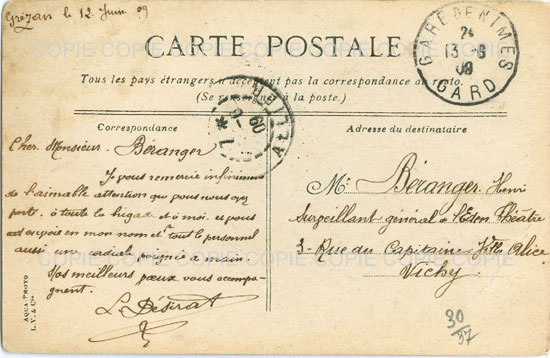 Grézan le 12 Juin 09
CARTE POSTALE
Tous les pays étrangers n'acceptent pas la correspondance au recto.
(Se renseigner à la poste.)
GARE DE NIMES
13 -6
09
GARD
VICHY
ALLIER
Correspondance
Cher Monsieur Béranger
Je vous remercie infiniment
de l'aimable attention que vous nous avez
porté à toute la brigade et à moi et vous
adresse en mon nom et tout le personnel
aussi une cordiale poignée de main.
Nos meilleurs vœux vous accompa-
gnent.
L. Désirat
Adresse du destinataire
Mr Béranger Henri
Surveillant général à l'Eden Théâtre
2 - Rue du Capitaine - Villa Alice
Vichy
30
37
AQUA-PHOTO
L. V. & Cie
COPIE COPIE COPIE COPIE COPIE